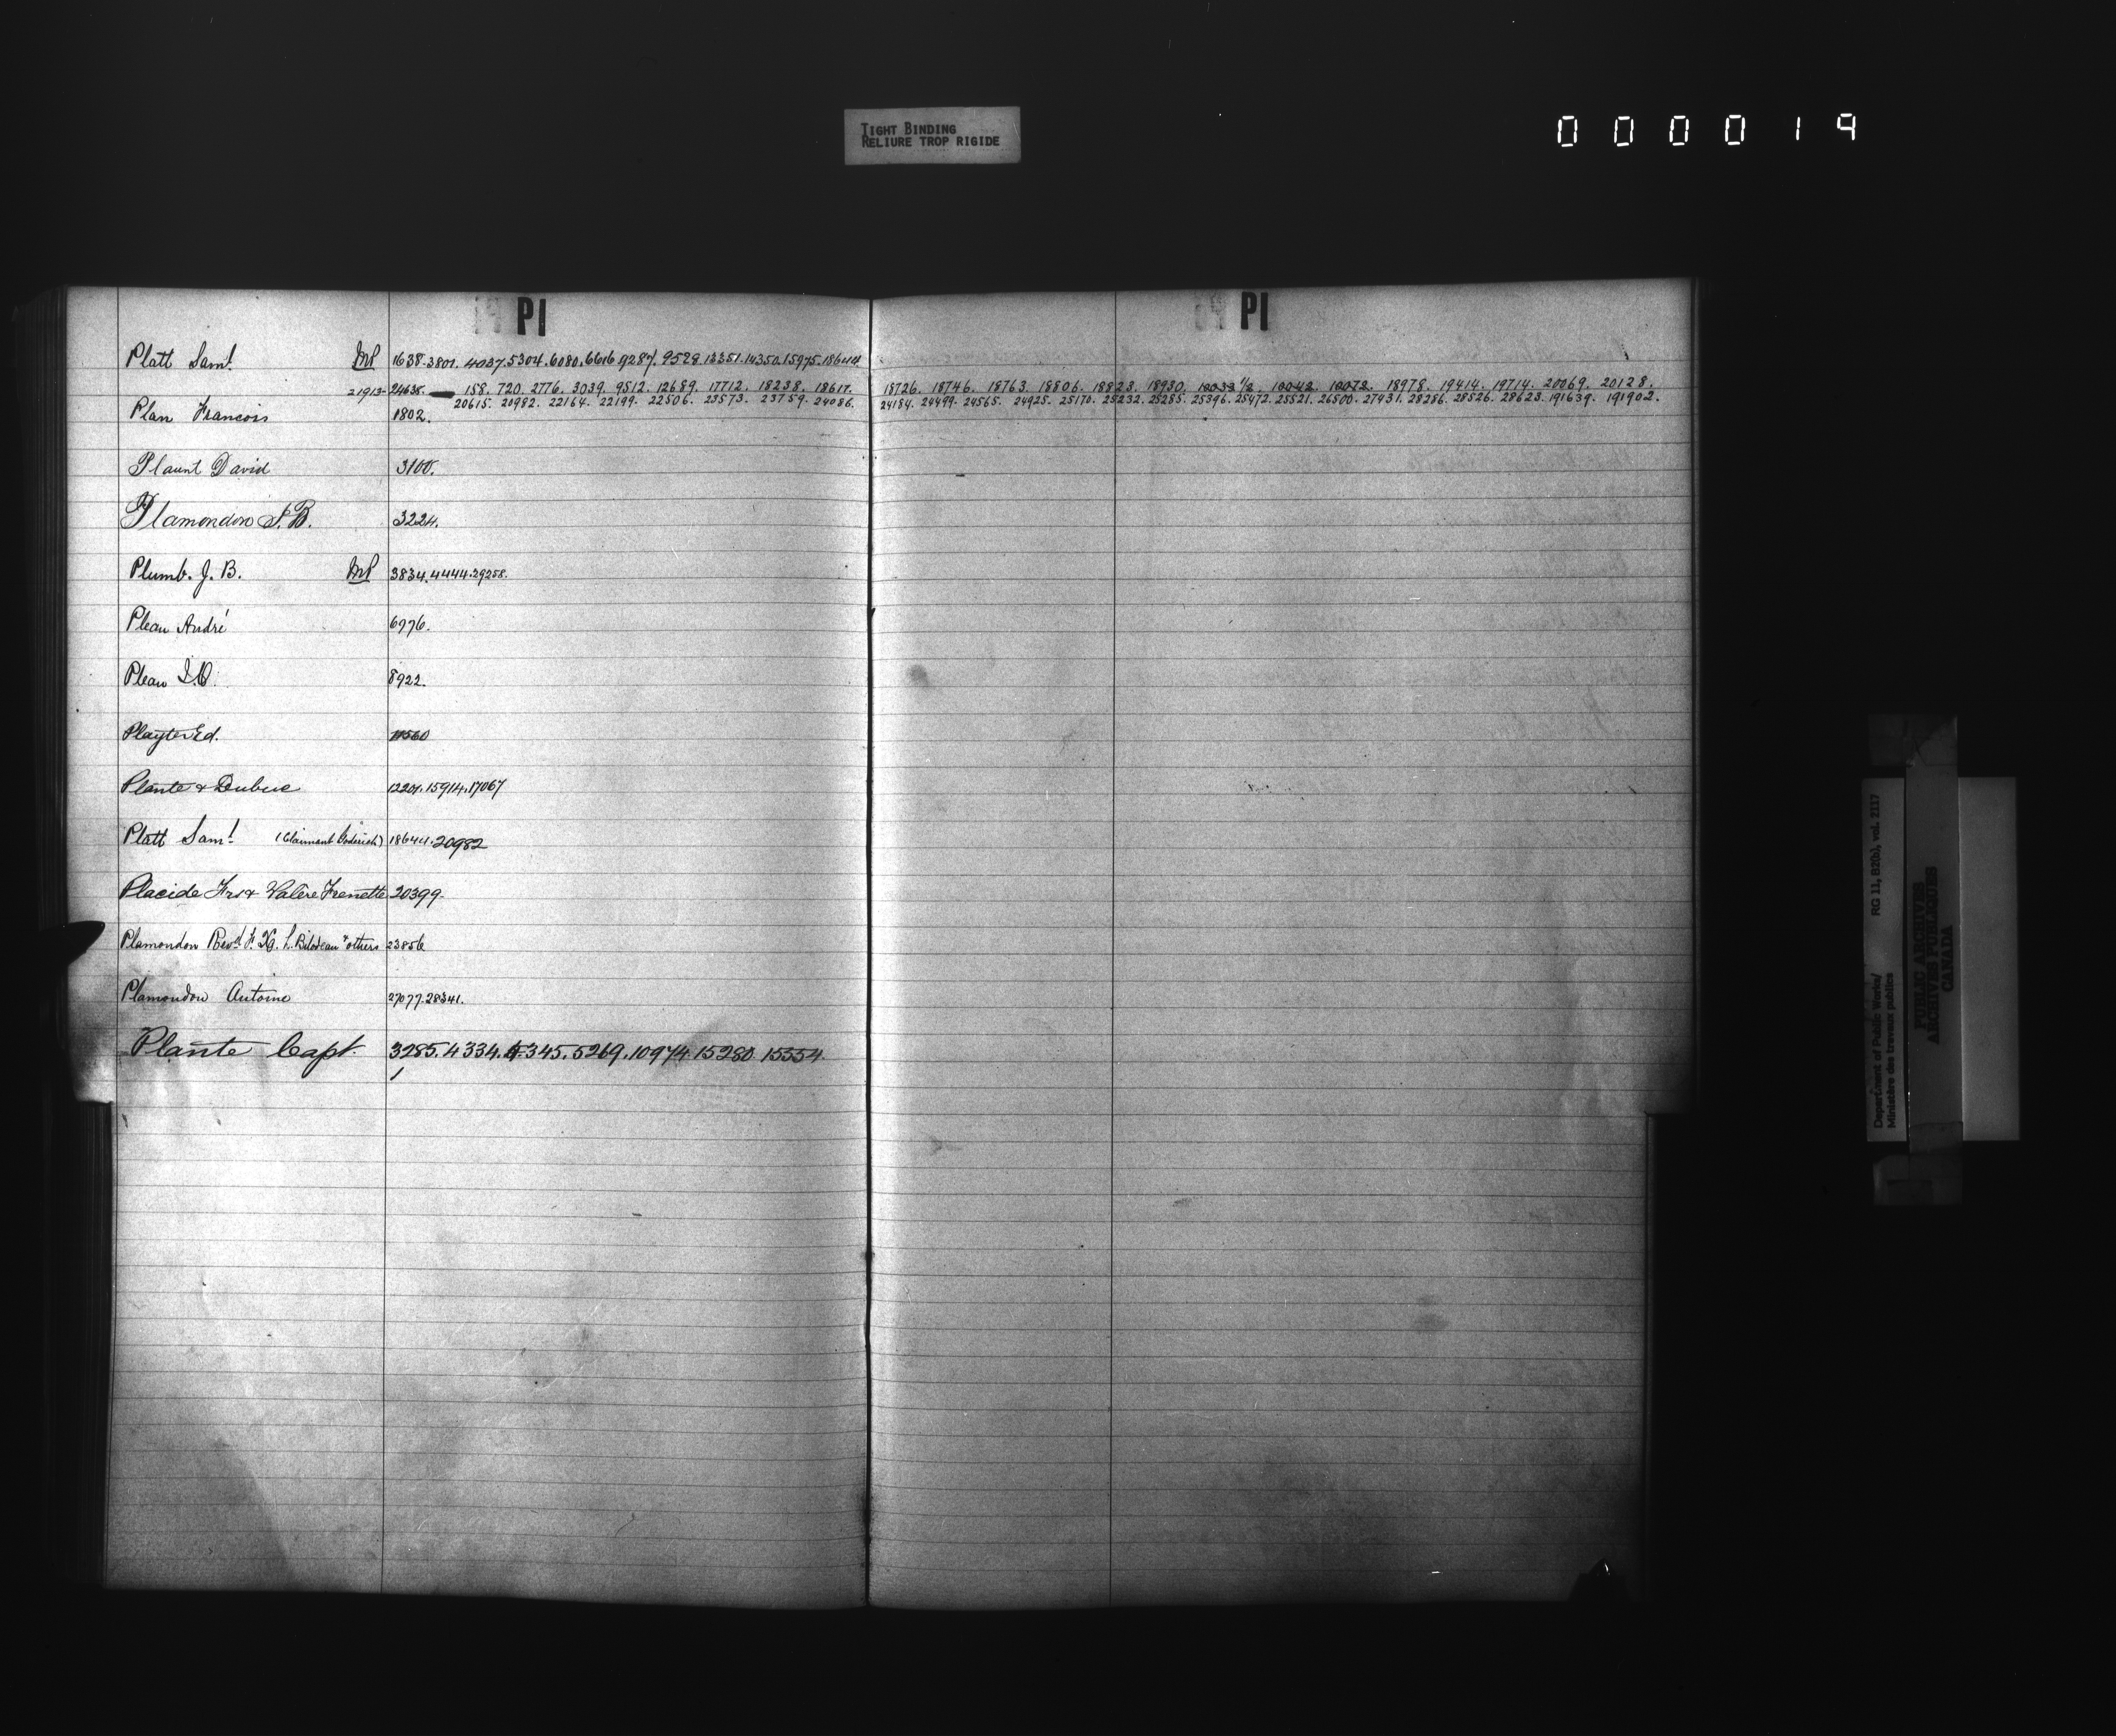 TIGHT BINDING
RELIURE TROP RIGIDE
000019
Pl
Platt Saml. MP 1638. 3801. 4037. 5304. 6080. 6616 9287. 9529. 13351. 14350. 15975. 18644
21913- 24638. — 158. 720. 2776. 3039. 9512. 12689. 17712. 18238. 18617.
20615. 20982. 22164. 22199. 22506. 23573. 23759. 24086.
Plan Francois 1802.
Plaunt David 3100.
Plamondon J. B. 3224.
Plumb. J. B. MP 3834. 4444. 29258.
Pleau André 6976.
Pleau 8922.
Playter Ed. 11560
Plante & Dubuc 12201. 15914. 17067
Platt Saml. (Claimant Goderich) 18644. 20982
Placide Frs & Valère Frenette 20399.
Plamondon Revd F. X. L. Bilodeau & others 23856
Plamondon Antoine 27077. 28341.
Plante Capt. 3285. 4334. 5345. 5269. 10974 15280 15354
Pl
18726. 18746. 18763. 18806. 18823. 18930. 18978. 19414. 19714. 20069. 20128.
24184. 24499. 24565. 24925. 25170. 25232. 25285. 25396. 25472. 25521. 26500. 27431. 28256. 28526. 28623. 191639. 191902.
Department of Public Works/
Ministère des travaux publics
RG 11, B2(b), vol. 2117
PUBLIC ARCHIVES
ARCHIVES PUBLIQUES
CANADA